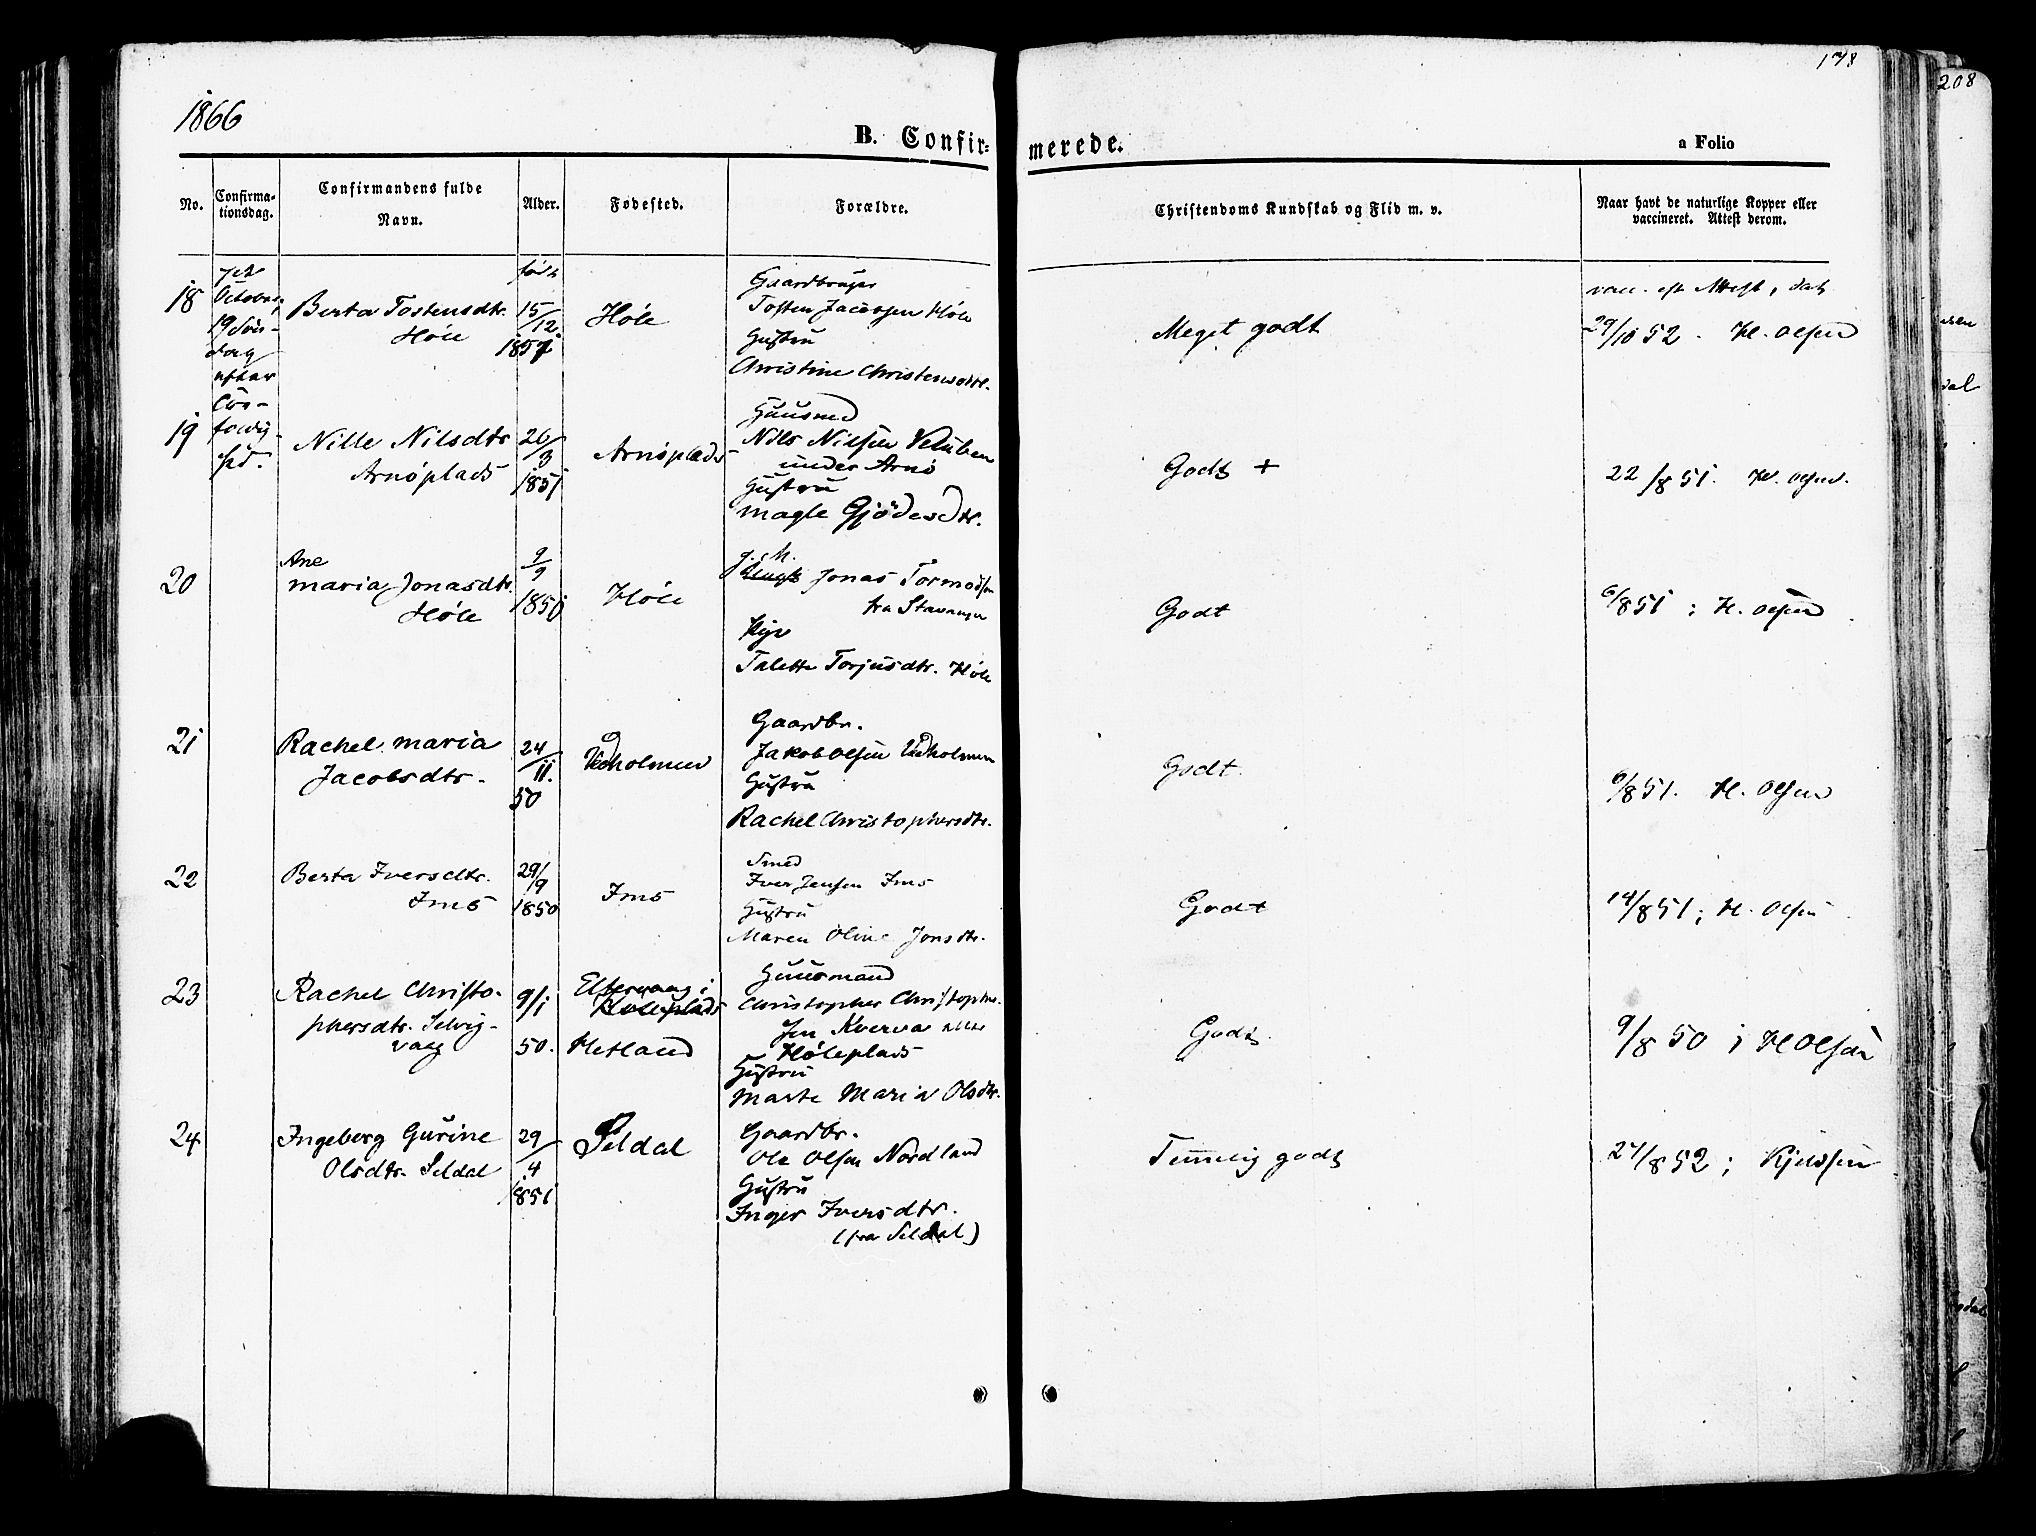 1866
178
208
B. Confir=
merede.
a Folio
No.
Confirma-
tionsdag.
Confirmandens fulde
Navn.
Alder.
Fødested.
Forældre.
Christendoms Kundskab og Flid m. v.
Naar havt de naturlige Kopper eller
vaccineret. Attest derom.
18
October,
19 Søn-
dag
efter
Tre-
foldig-
hed.
Berta Tostensdtr.
Høle
født
15/12
1851
Høle
Gaardbruger
Tosten Jacobsen Høle
Hustru
Christine Christensdtr.
Meget godt
vacc. eft. Attest, dat.
29/10 52. H. Olsen
19
Nille Nilsdtr
Arnøplads
26/3
1851
Arnøplads
Huusmd
Nils Nilsen
under Arnø
Hustru
Magle Gjødesdtr.
Godt +
22/8 51. H. Olsen.
20
Ane
Maria Jonasdtr.
Høle
9/9
1850
Høle
Jonas Tormodsen
fra Stavanger
Pige
Talette Torjusdtr. Høle
Godt
6/8 51 ; H. Olsen
21
Rachel Maria
Jacobsdtr.
24/11.
50
Vedholmen
Gaardbr.
Jakob Olsen Vedholmen
Hustru
Rachel Christophersdtr.
Godt.
6/8 51. H. Olsen
22
Berta Iversdtr.
Ims
29/9
1850
Ims
Smed
Iver Jensen Ims
Hustru
Maren Oline Jonsdtr.
Godt
14/8 51 ; H. Olsen
23
Rachel Christo-
phersdtr. Selvig-
vaag
9/1
50.
i
Høleplads
Hetland
Huusmand
Christopher Christopher-
sen Kverva
Høleplads
Hustru
Marte Maria Olsdtr.
Godt.
9/8 50 ; H Olsen
24
Ingeborg Gurine
Olsdtr. Seldal
29/4
1851
Seldal
Gaardbr.
Ole Olsen Nordland
Hustru
Inger Iversdtr.
(fra Seldal)
Temmelig godt
24/8 52 ; Kjeldsen